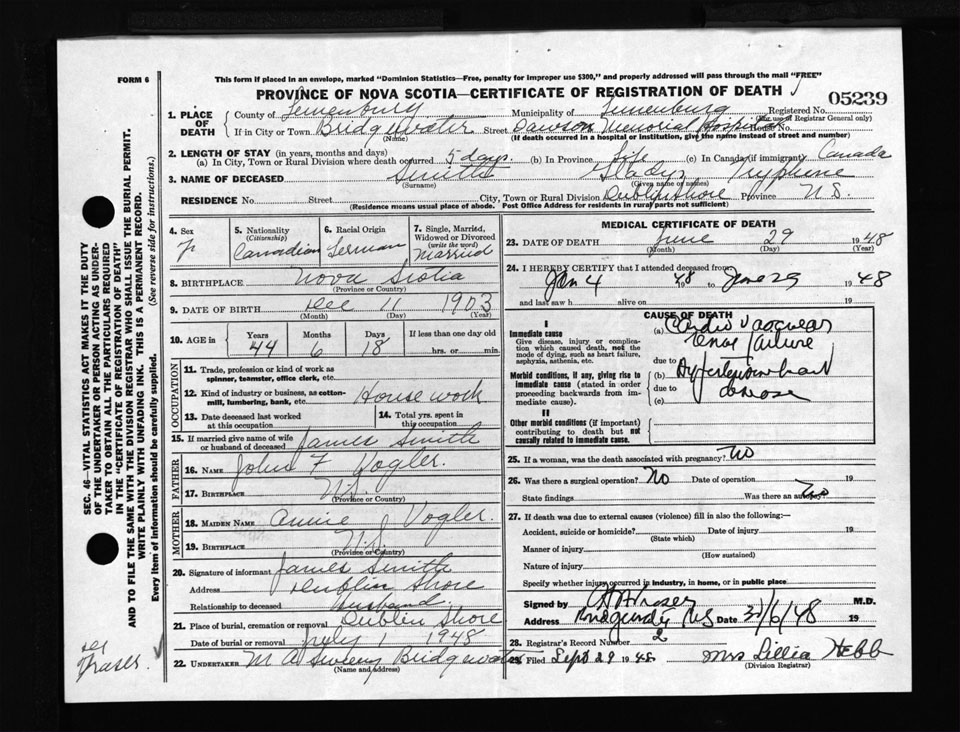 FORM 6
This form if placed in an envelope, marked "Dominion Statistics—Free, penalty for improper use $300," and properly addressed will pass through the mail "FREE"
PROVINCE OF NOVA SCOTIA—CERTIFICATE OF REGISTRATION OF DEATH
05239
1. PLACE OF DEATH County of Lunenburg Municipality of Lunenburg Registered No. (For use of Registrar General only)
If in City or Town Bridgewater (Name) Street Dawson Memorial Hospital House No.
(If death occurred in a hospital or institution, give the name instead of street and number)
2. LENGTH OF STAY (in years, months and days)
(a) In City, Town or Rural Division where death occurred 5 days. (b) In Province Life (c) In Canada (if immigrant) Canada
3. NAME OF DECEASED Smith (Surname) Gladys Tryphene (Given name or names)
RESIDENCE No. Street City, Town or Rural Division Dublin Shore Province N.S.
(Residence means usual place of abode. Post Office Address for residents in rural parts not sufficient)
4. Sex F
5. Nationality (Citizenship) Canadian
6. Racial Origin German
7. Single, Married, Widowed or Divorced (write the word) Married
8. BIRTHPLACE Nova Scotia (Province or Country)
9. DATE OF BIRTH Dec (Month) 11 (Day) 1903 (Year)
10. AGE in Years 44 Months 6 Days 18 If less than one day old hrs. or min.
OCCUPATION
11. Trade, profession or kind of work as spinner, teamster, office clerk, etc.
12. Kind of industry or business, as cotton-mill, lumbering, bank, etc. House work
13. Date deceased last worked at this occupation
14. Total yrs. spent in this occupation
15. If married give name of wife or husband of deceased James Smith
FATHER
16. NAME John F Vogler.
17. BIRTHPLACE N.S. (Province or Country)
MOTHER
18. MAIDEN NAME Annie J Vogler.
19. BIRTHPLACE N.S. (Province or Country)
20. Signature of informant James Smith
Address Dublin Shore
Relationship to deceased Husband
21. Place of burial, cremation or removal Dublin Shore
Date of burial or removal July 1 1948
22. UNDERTAKER M A Sweeny Bridgewater
(Name and address)
MEDICAL CERTIFICATE OF DEATH
23. DATE OF DEATH June (Month) 29 (Day) 1948 (Year)
24. I HEREBY CERTIFY that I attended deceased from
Jan 4 1948 to June 29 1948
and last saw h alive on 19
CAUSE OF DEATH
I
Immediate cause
Give disease, injury or complication which caused death, not the mode of dying, such as heart failure, asphyxia, asthenia, etc.
(a) Cardio Vascular Renal failure
due to
Morbid conditions, if any, giving rise to immediate cause (stated in order proceeding backwards from immediate cause).
(b) Hypertension heart disease
due to
(c)
II
Other morbid conditions (if important) contributing to death but not causally related to immediate cause.
25. If a woman, was the death associated with pregnancy? No
26. Was there a surgical operation? No Date of operation 19
State findings Was there an autopsy? No
27. If death was due to external causes (violence) fill in also the following:—
Accident, suicide or homicide? Date of injury 19
(State which)
Manner of injury (How sustained)
Nature of injury
Specify whether injury occurred in industry, in home, or in public place
Signed by Fraser M.D.
Address Bridgewater NS Date 30/6/48 19
28. Registrar's Record Number 2
29. Filed Sept 29 1948 Mrs Lillia Hebb
(Division Registrar)
SEC. 46—VITAL STATISTICS ACT MAKES IT THE DUTY
OF THE UNDERTAKER OR PERSON ACTING AS UNDERTAKER TO OBTAIN ALL THE PARTICULARS REQUIRED
IN THE "CERTIFICATE OF REGISTRATION OF DEATH"
AND TO FILE THE SAME WITH THE DIVISION REGISTRAR WHO SHALL ISSUE THE BURIAL PERMIT.
WRITE PLAINLY WITH UNFADING INK. THIS IS A PERMANENT RECORD.
Every item of information should be carefully supplied. (See reverse side for instructions.)
Fraser